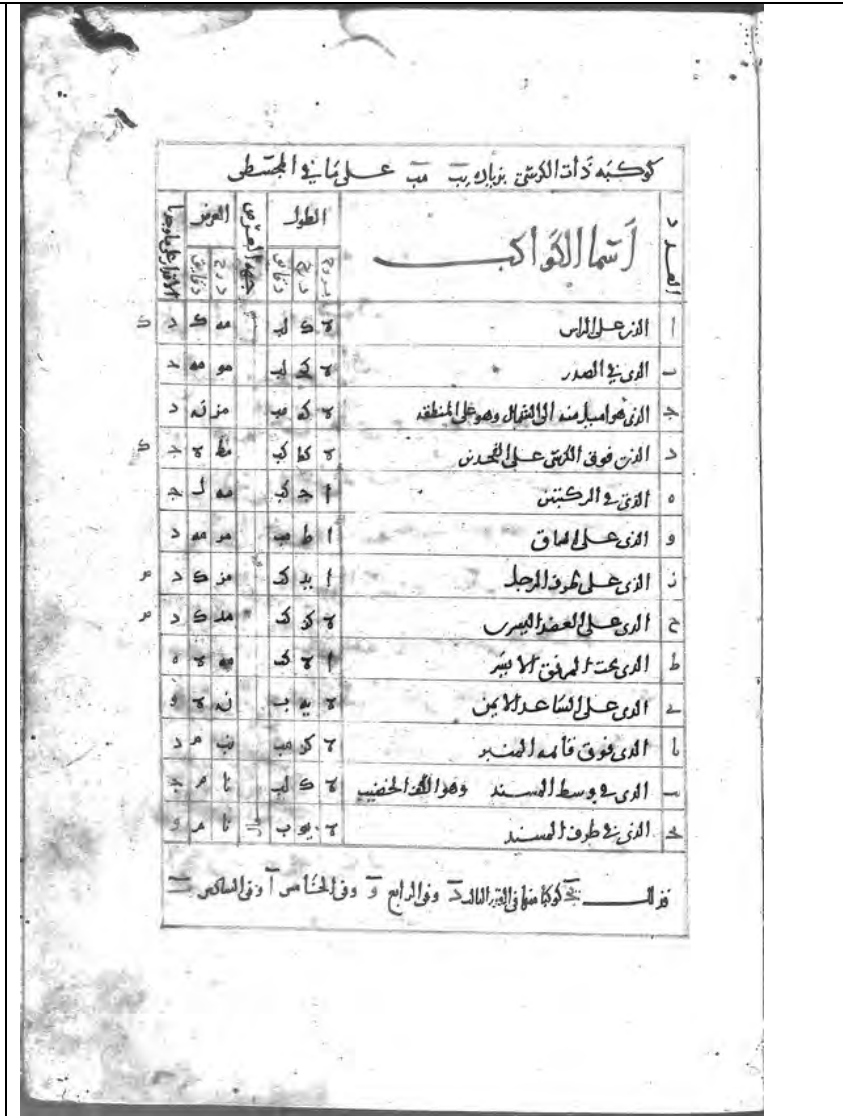 كوكبه ذات الكرسى بزياده يب مب على ما فى المجسطى
العدد اسما الكواكب الطول جهه العرض العرض الاقدار على ما وجدنا
بروج درج دقايق درج دقايق
ا الذى على الراس ه ك لب مه ك د ك
ب الذى فى الصدر ه كج لب مو مه د
ج الذى هو اميل منه الى الشمال وهو على المنطقه ه كه مب مز ن د
د الذى فوق الكرسى على الفخذين ه كط كب مط ه ج ك
ه الذى فى الركبتين ا ج كب مه ل ج
و الذى على الساق ا ط مب مز مه د
ز الذى على طرف الرجل ا يد كد مز ك د م
ح الذى على العضد اليسرى ه كز كد مد ك د م
ط الذى تحت المرفق الايسر ا ه كد مه ه ه
ى الذى على الساعد الايمن ه يه ب ن ه و
يا الذى فوق قائمه المنبر ه كز مب نب م د
يب الذى فى وسط المسند وهو الكف الخضيب ه ك لب نا م ج
يج الذى فى طرف المسند ه يو ب شمال نا م و
فذلك يج كوكبا منها فى القدر الثالث د وفى الرابع و وفى الخامس ا وفى السادس ب